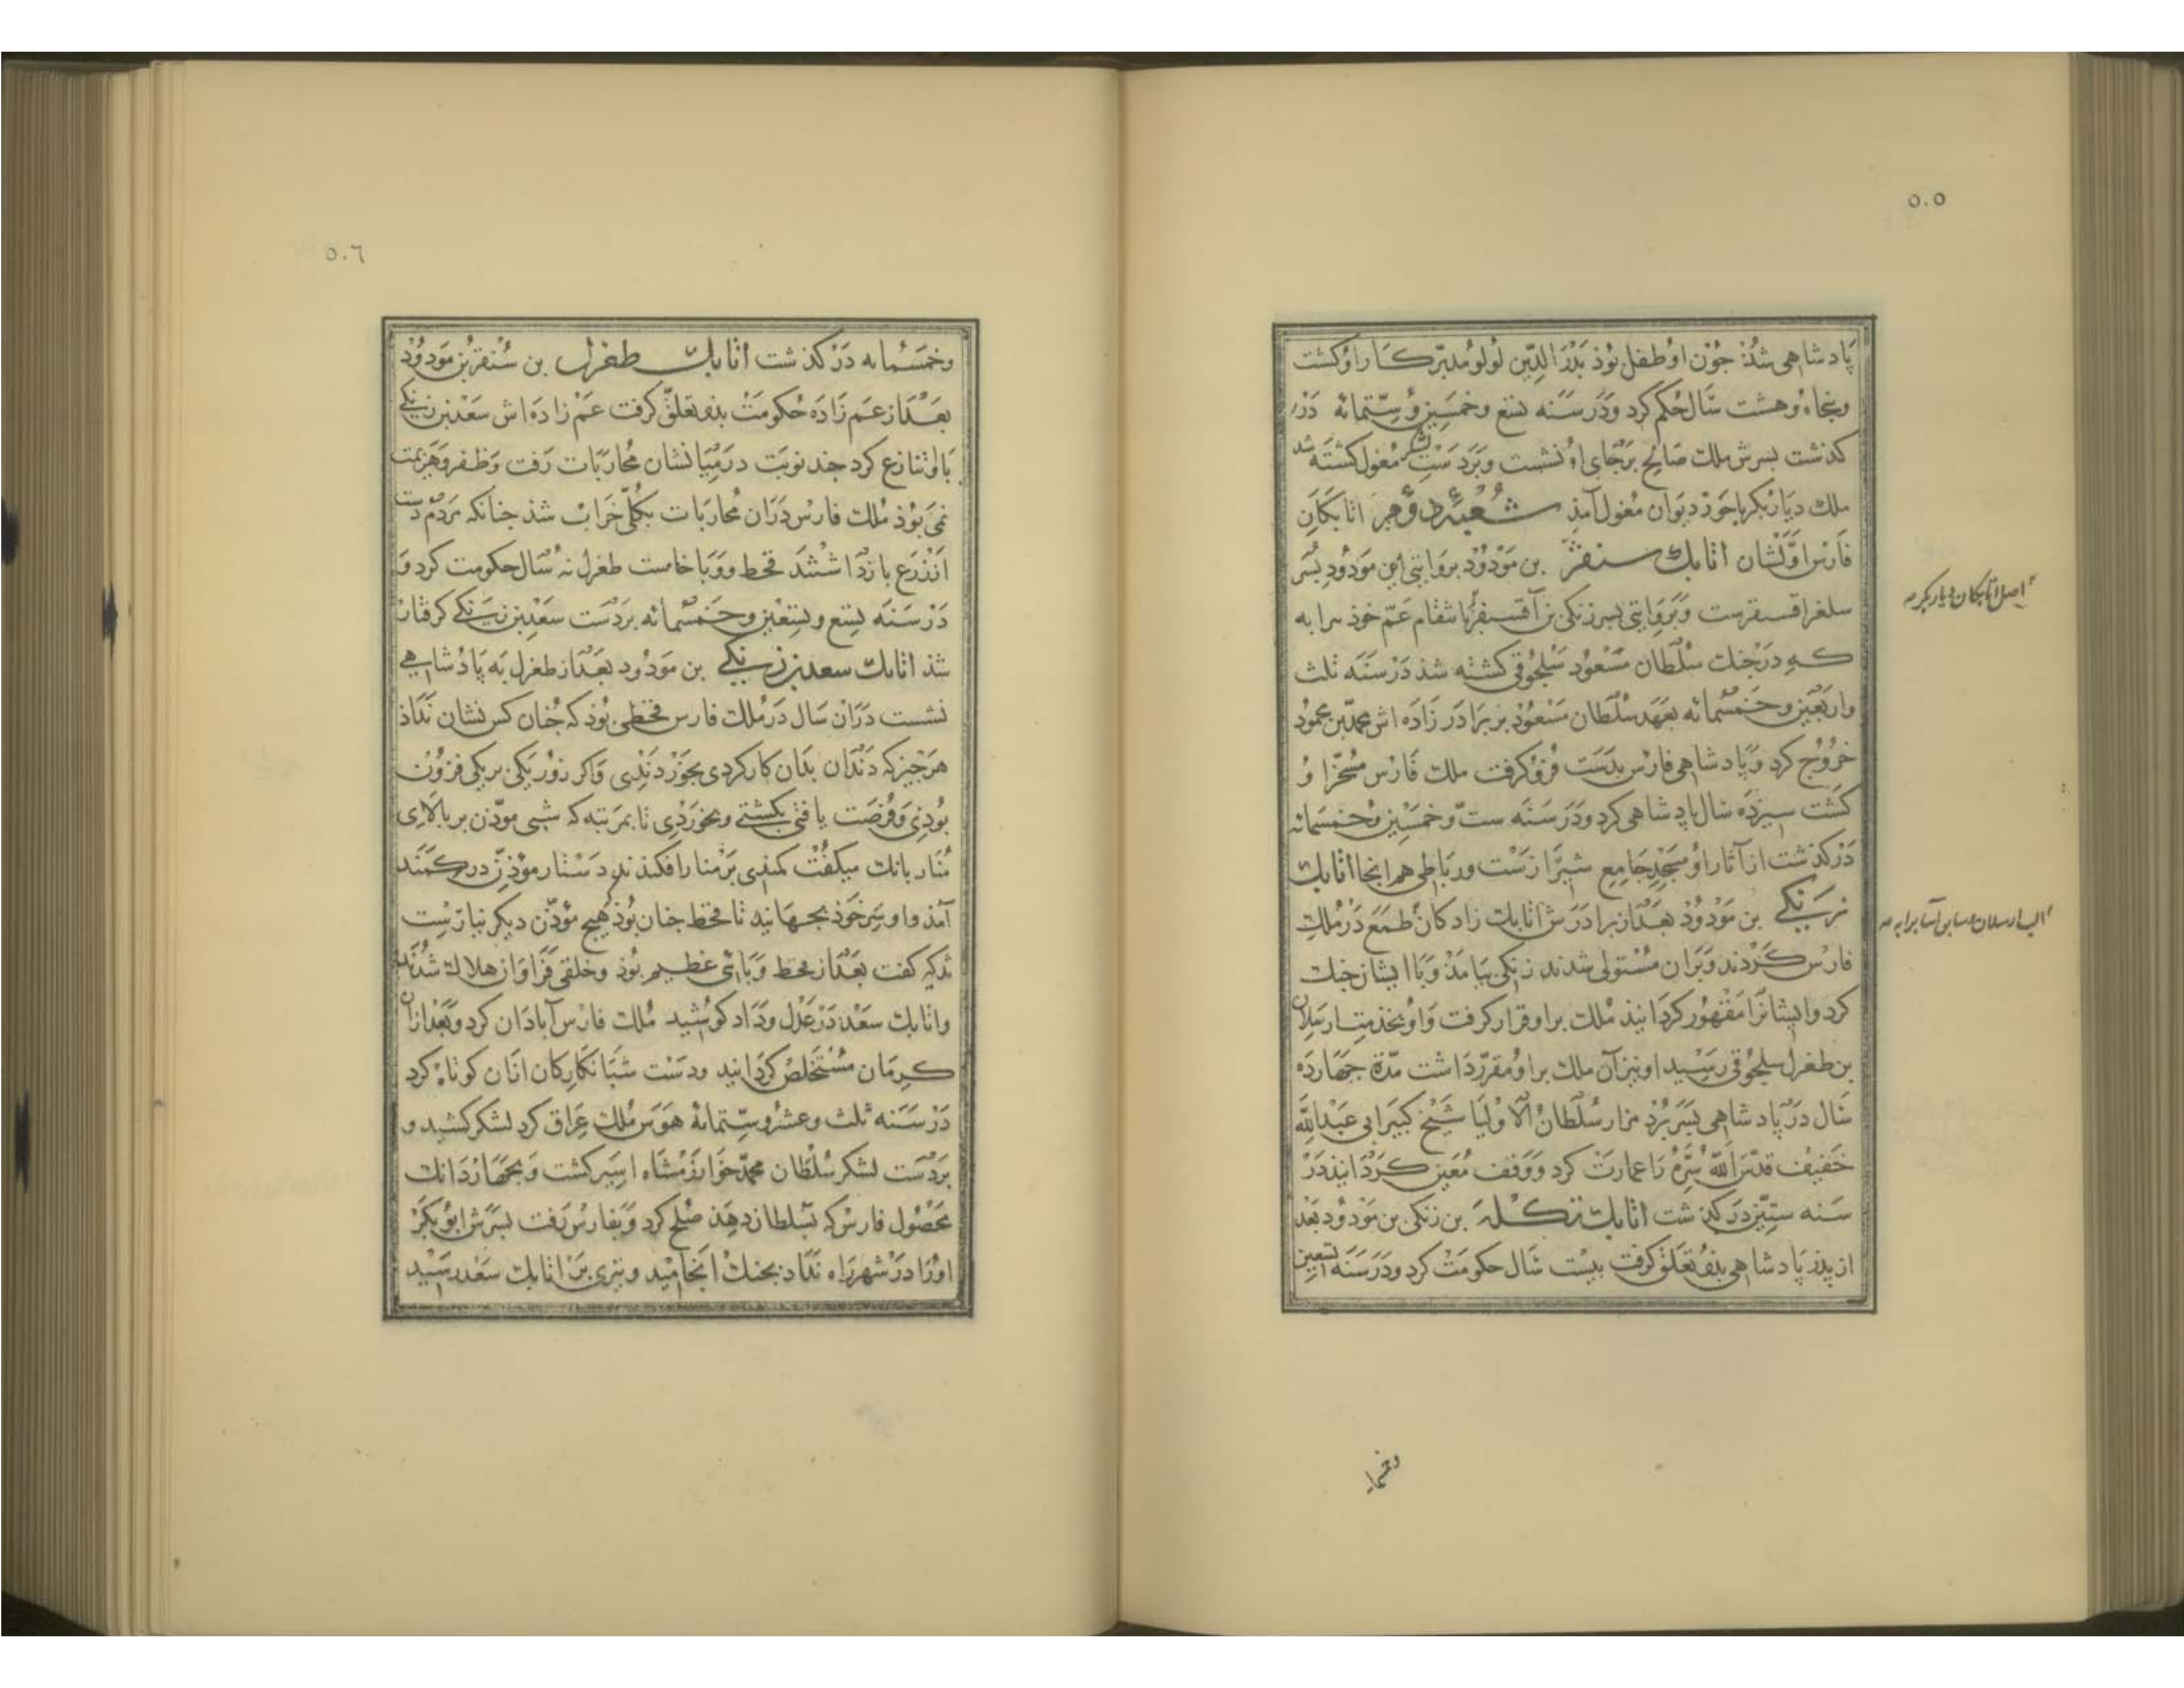 ٥٠٥
پادشاهی شذ جون او طفل بوذ بدر الدین لولو مدبّر کار او کشت
و پنجاه و هشت سال حکم کرد و در سنه تسع و خمسین و ستّمائه در
کذشت بسرش ملک صالح بر جای او نشست و بر دست لشکر مغول کشته شد
ملک دیار بکر با حوز دیوان مغول آمذ شعبهٔ دوم اتابکان
فارس اوّلشان اتابک سنقر بن مودود بروایتی این مودود بسر
سلغر اقسنقرست و بروایتی بسر زنکی بن آقسنقر بانتقام عمّ خوذ برابه
که در جنک سلطان مسعود سلجوقی کشته شذ در سنه ثلث
و اربعین و خمسمائه بعهد سلطان مسعود بر برادر زاده اش محمد بن محمود
خروج کرد و پادشاهی فارس بدست فرو کرفت ملک فارس مسخّر او
کشت سیزده سال پادشاهی کرد و در سنه ستّ و خمسین و خمسمائه
در کذشت از آثار او مسجد جامع شیرازست و رباطی هم انجا اتابک
زنکی بن مودود بعد از برادرش اتابک زادکان طمع در ملک
فارس کردند و بران مستولی شدند زنکی بیامذ و با ایشان جنک
کرد و ایشانرا مقهور کردانیذ ملک بر او قرار کرفت و او بخذمت ارسلان
بن طغرل سلجوقی رسید او نیز آن ملک بر او مقرّر داشت مدّة جهارده
سال در پادشاهی بسر برد مزار سلطان الاولیا شیخ کبیر ابی عبد الله
خفیف قدّس الله سرّه را عمارت کرد و وقف معین کردانیذ در
سنه ستین در کذشت اتابک تکله بن زنکی بن مودود بعد
از پذر پادشاهی بذو تعلق کرفت بیست سال حکومت کرد و در سنه تسعین
اصل اتابکان دیار بکر
الب ارسلان
وخمسما
٥٠٦
و خمسمایه در کذشت اتابک طغرل بن سنقر بن مودود
بعد از عم زاده حکومت بذو تعلّق کرفت عم زاده اش سعد بن زنکی
با او تنازع کرد جند نوبت در میانشان محاربات رفت و ظفر و هزیمت
می بوذ ملک فارس دران محاربات بکلّی خراب شذ جنانکه مردم دست
از زرع باز داشتند قحط و وبا خاست طغرل نه سال حکومت کرد و
در سنه تسع و تسعین و خمسمائه بر دست سعد بن زنکی کرفتار
شذ اتابک سعد بن زنکی بن مودود بعد از طغرل به پادشاهی
نشست دران سال در ملک فارس قحطی بوذ که جنان کس نشان نداذ
هر جیز که دندان بدان کار کردی بخوردندی و اکر زور یکی بر یکی فزون
بوذی و فرصت یافتی بکشتی و بخوردی تا بمرتبه که شبی موذّن بر بالای
منار بانک میکفت کمندی بر منار افکندند دستار مؤذن در کمند
آمذ و او سر خوذ بجهانید تا قحط جنان بوذ هیج مؤذن دیکر نیارست
تذکیر کفت بعد از قحط وبائی عظیم بوذ و خلقی فراوان هلاک شدند
و اتابک سعد در عدل و داد کوشید ملک فارس آبادان کرد و بعد ازان
کرمان مستخلص کردانید و دست شبانکارکان ازان کوتاه کرد
در سنه ثلث و عشر و ستّمائه هوس ملک عراق کرد لشکر کشید و
بر دست لشکر سلطان محمد خوارزمشاه اسیر کشت و بجهار دانک
محصول فارس که بسلطان دهذ صلح کرد و بفارس رفت بسرش ابو بکر
او را در شهر راه نداد بجنک انجامید و تیری بر اتابک سعد رسید